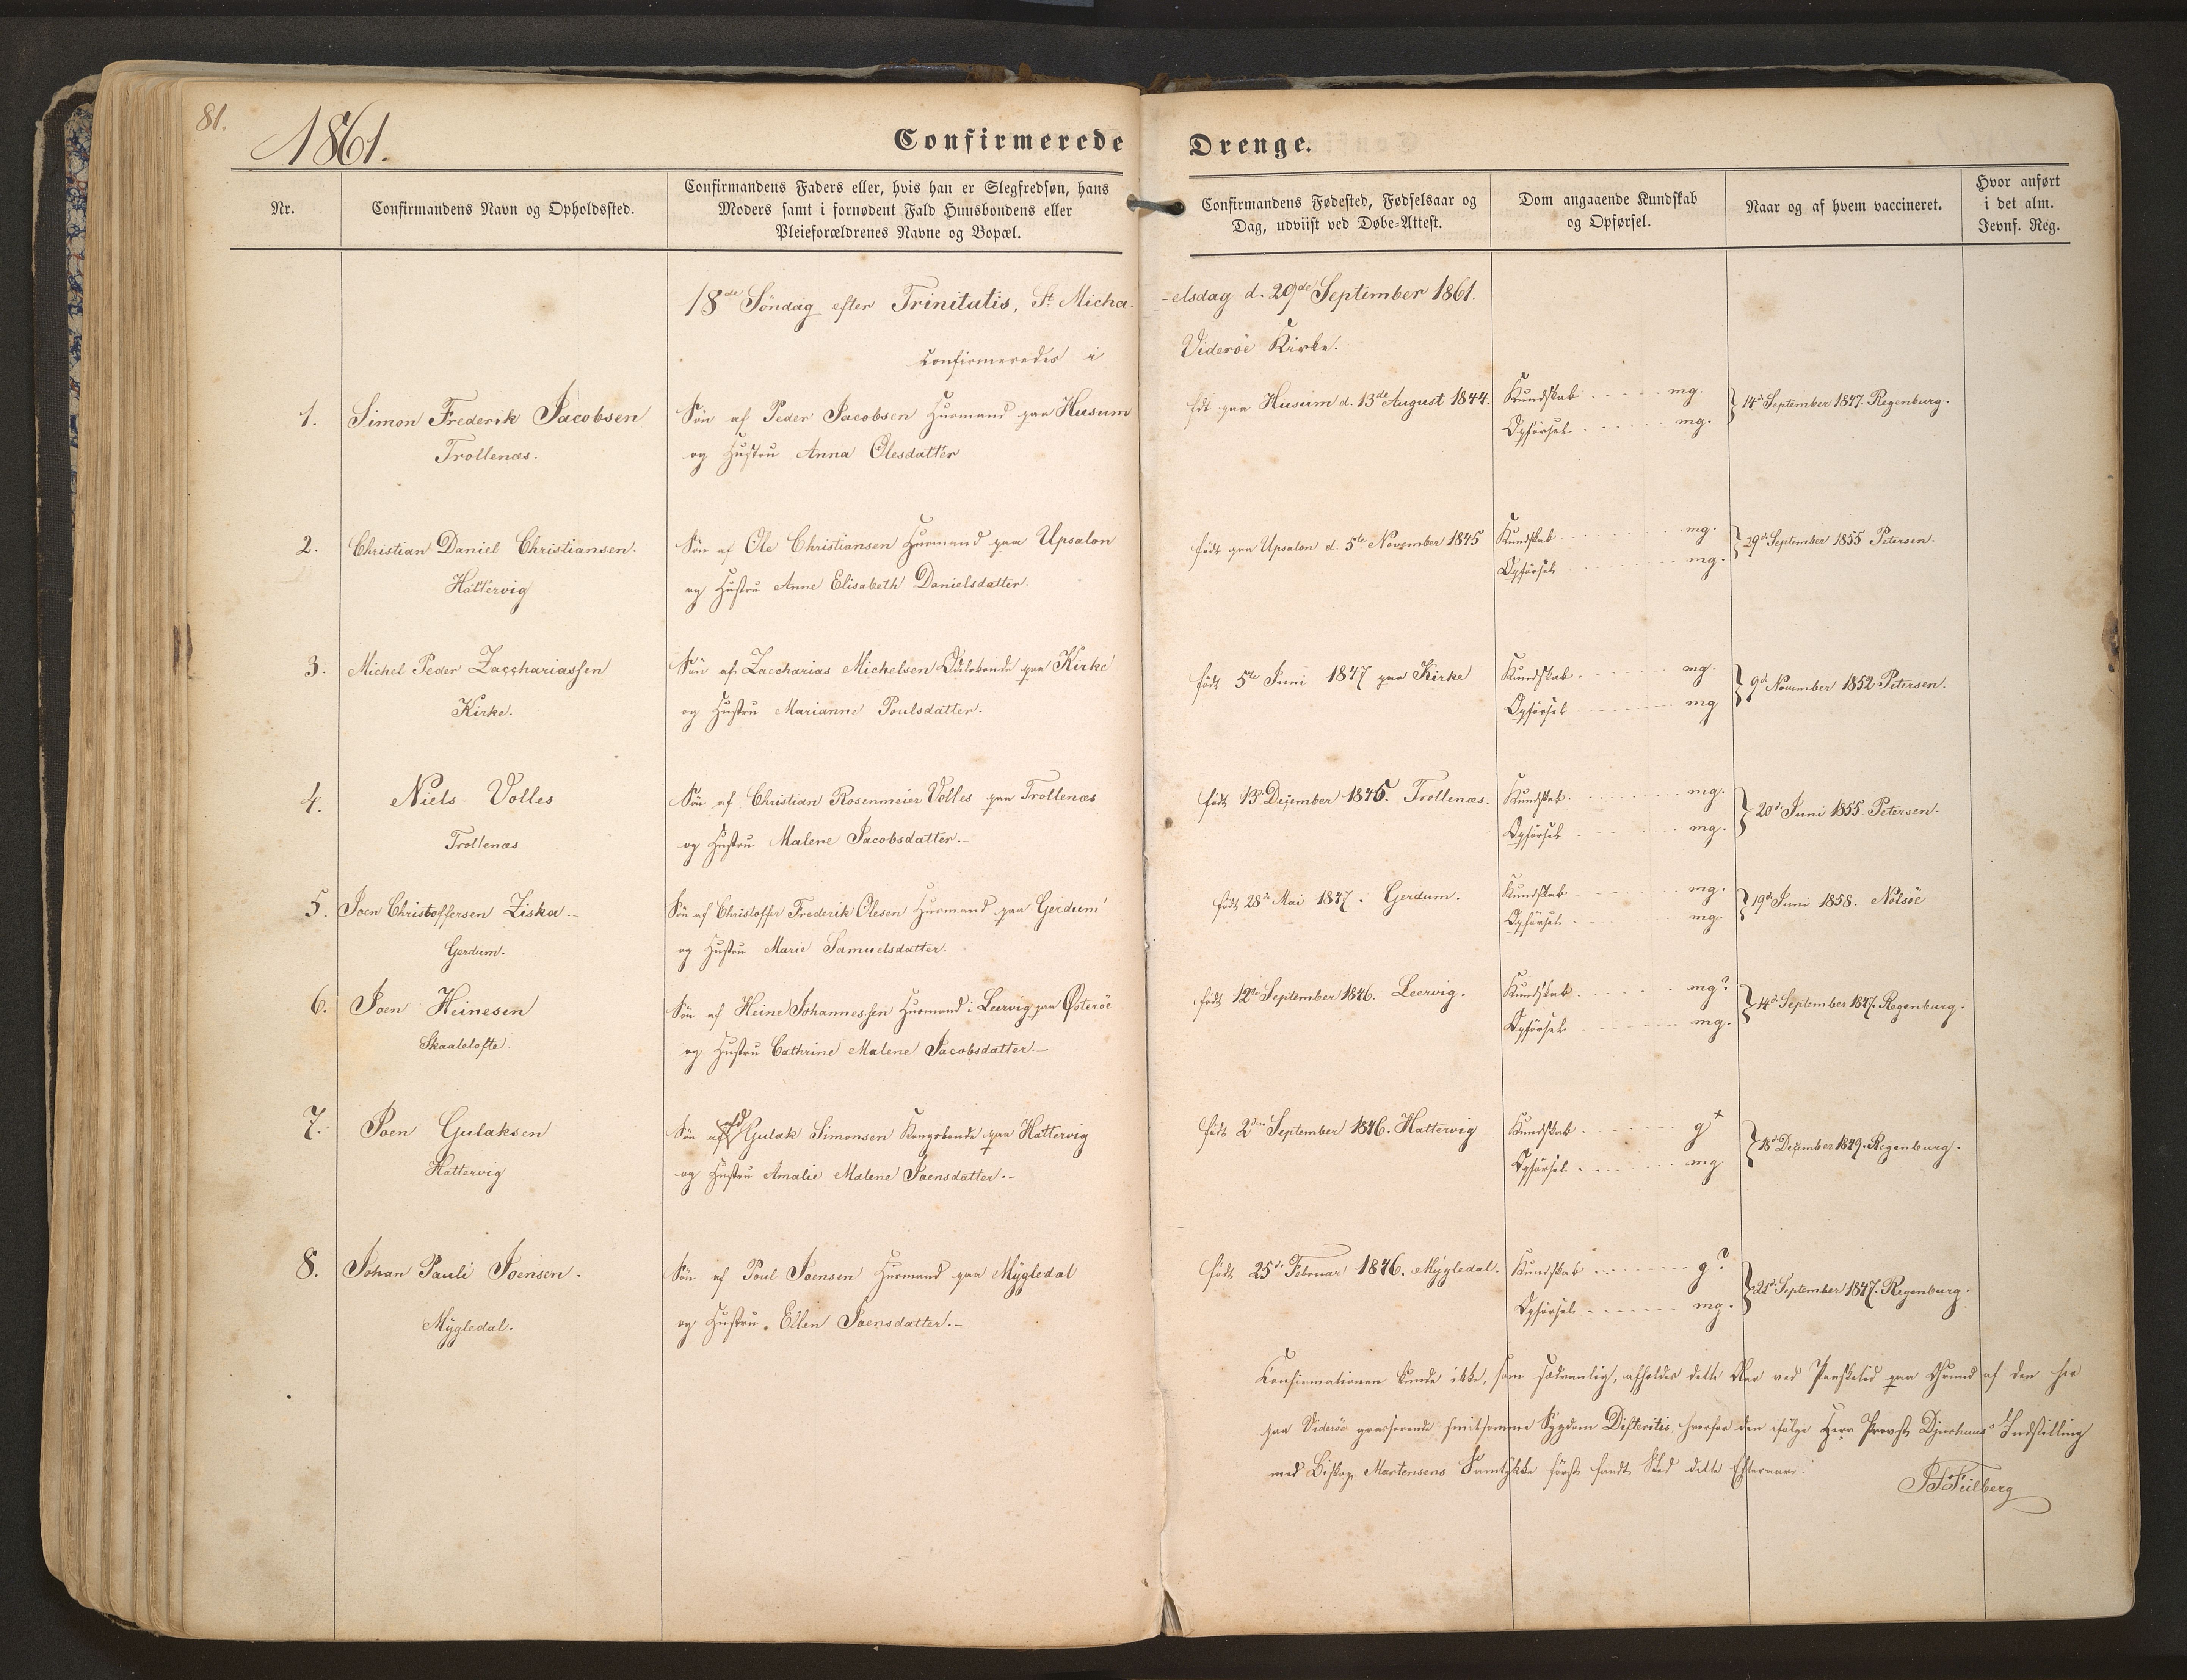 81.
1861.
Confirmerede Drenge.
Nr.
Confirmandens Navn og Opholdssted.
Confirmandens Faders eller, hvis han er Slegfredsøn, hans
Moders samt i fornødent Fald Huusbondens eller
Pleieforældrenes Navne og Bopæl.
Confirmandens Fødested, Fødselsaar og
Dag, udviist ved Døbe-Attest.
Dom angaaende Kundskab
og Opførsel.
Naar og af hvem vaccineret.
Hvor anført
i det alm.
Jevnf. Reg.
18de Söndag efter Trinitatis, St. Micha-
-elsdag d. 29de September 1861.
Confirmeredes i
Viderøe Kirke.
1. Simon Frederik Jacobsen
Trollenæs.
Sön af Peder Jacobsen Huusmand paa Husum
og Hustru Anna Olesdatter
fdt paa Husum d. 13de August 1844.
Kundskab mg.
Opførsel mg.
14de September 1847. Regenburg.
2. Christian Daniel Christiansen.
Hattervig
Sön af Ole Christiansen Huusmand paa Upsalon
og Hustru Anne Elisabeth Danielsdatter.
født paa Upsalon d. 5te November 1845
Kundskab mg.
Opførsel mg.
29de September 1855 Petersen.
3. Michel Peder Zacchariassen
Kirke.
Sön af Zaccharias Michelsen Odelsbonde paa Kirke
og Hustru Marianne Poulsdatter.
født 5te Juni 1847 paa Kirke
Kundskab mg.
Opførsel mg
9de November 1852 Petersen.
4. Niels Volles
Trollenæs
Sön af Christian Rosenmeier Volles paa Trollenæs
og Hustru Malene Jacobsdatter.-
født 13de December 1845. Trollenæs.
Kundskab mg.
Opførsel mg.
20de Juni 1855. Petersen.
5. Joen Christoffersen Ziska.-
Gerdum.
Sön af Christoffer Frederik Olesen Huusmand paa Gerdum
og Hustru Marie Samuelsdatter.
født 28de Mai 1847. Gerdum.
Kundskab mg.
Opførsel mg.
19de Juni 1858. Nolsöe
6. Joen Heinesen
Skaaletofte.
Sön af Heine Johannessen Huusmand i Leervig paa Østeröe
og Hustru Cathrine Malene Jacobsdatter.-
født 12te September 1846. Leervig.
Kundskab mg?
Opførsel mg.
14de September 1847. Regenburg.
7. Joen Gulaksen
Hattervig
Sön af Gulak Simonsen Kongsbonde paa Hattervig
og Hustru Amalie Malene Joensdatter.-
født 2den September 1846. Hattervig
Kundskab g+
Opførsel mg
18de December 1849. Regenburg.
8. Johan Pauli Joensen.
Mygledal.
Sön af Poul Joensen Huusmand paa Mygledal
og Hustru Ellen Joensdatter.-
født 25de Februar 1846. Mygledal.
Kundskab g?
Opførsel mg.
21de September 1847. Regenburg.
Confirmationen kunde ikke, som sædvanlig, afholdes dette Aar ved Paasketid paa Grund af den her
paa Viderøe grasserende smitsomme Sygdom Difteritis, hvorfor den ifølge Herr Provst Djurhuus' Indstilling
med Biskop Martensens Samtykke først fandt Sted dette Efteraar.
Feilberg